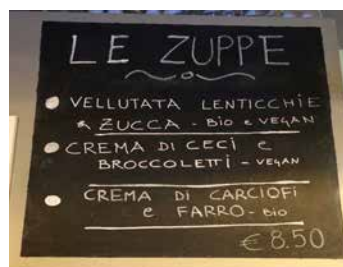 LE ZUPPE
VELLUTATA LENTICCHIE
& ZUCCA - BIO e VEGAN
CREMA DI CECI e
BROCCOLETTI - VEGAN
CREMA DI CARCIOFI
e FARRO - BIO
€ 8.50